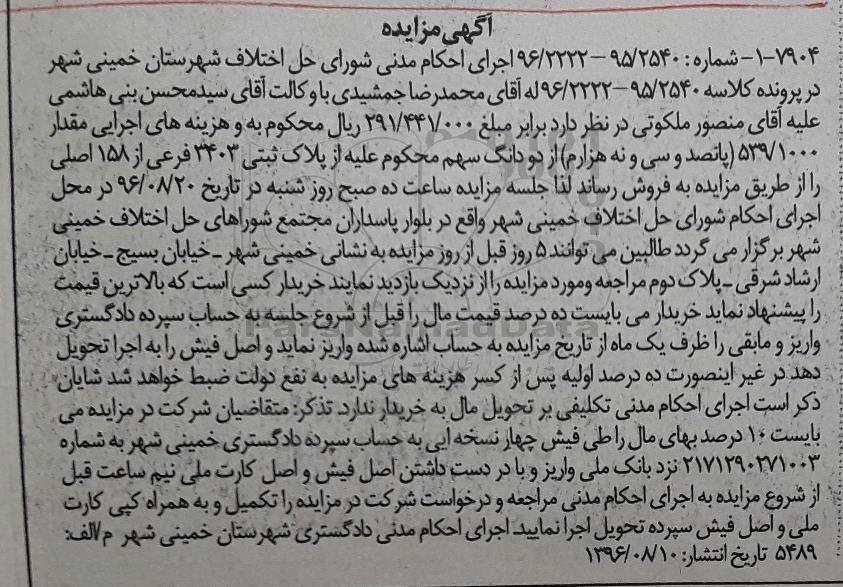 آگهی مزایده
۱-۷۹۰۴- شماره: ۹۵/۲۵۴۰ – ۹۶/۲۲۲۲ اجرای احکام مدنی شورای حل اختلاف شهرستان خمینی شهر
در پرونده کلاسه ۹۵/۲۵۴۰–۹۶/۲۲۲۲ له آقای محمدرضا جمشیدی با وکالت آقای سیدمحسن بنی هاشمی
علیه آقای منصور ملکوتی در نظر دارد برابر مبلغ ۲۹۱/۴۴۱/۰۰۰ ریال محکوم به و هزینه های اجرایی مقدار
۵۳۹/۱۰۰۰ (پانصد و سی و نه هزارم) از دو دانگ سهم محکوم علیه از پلاک ثبتی ۳۴۰۳ فرعی از ۱۵۸ اصلی
را از طریق مزایده به فروش رساند لذا جلسه مزایده ساعت ده صبح روز شنبه در تاریخ ۹۶/۰۸/۲۰ در محل
اجرای احکام شورای حل اختلاف خمینی شهر واقع در بلوار پاسداران مجتمع شوراهای حل اختلاف خمینی
شهر برگزار می گردد طالبین می توانند ۵ روز قبل از روز مزایده به نشانی خمینی شهر ـ خیابان بسیج ـ خیابان
ارشاد شرقی ـ پلاک دوم مراجعه ومورد مزایده را از نزدیک بازدید نمایند خریدار کسی است که بالاترین قیمت
را پیشنهاد نماید خریدار می بایست ده درصد قیمت مال را قبل از شروع جلسه به حساب سپرده دادگستری
واریز و مابقی را ظرف یک ماه از تاریخ مزایده به حساب اشاره شده واریز نماید و اصل فیش را به اجرا تحویل
دهد در غیر اینصورت ده درصد اولیه پس از کسر هزینه های مزایده به نفع دولت ضبط خواهد شد شایان
ذکر است اجرای احکام مدنی تکلیفی بر تحویل مال به خریدار ندارد. تذکر: متقاضیان شرکت در مزایده می
بایست ۱۰ درصد بهای مال را طی فیش چهار نسخه ایی به حساب سپرده دادگستری خمینی شهر به شماره
۲۱۷۱۲۹۰۲۷۱۰۰۳ نزد بانک ملی واریز و با در دست داشتن اصل فیش و اصل کارت ملی نیم ساعت قبل
از شروع مزایده به اجرای احکام مدنی مراجعه و درخواست شرکت در مزایده را تکمیل و به همراه کپی کارت
ملی و اصل فیش سپرده تحویل اجرا نمایید. اجرای احکام مدنی دادگستری شهرستان خمینی شهر م/الف:
۵۴۸۹ تاریخ انتشار: ۱۳۹۶/۰۸/۱۰